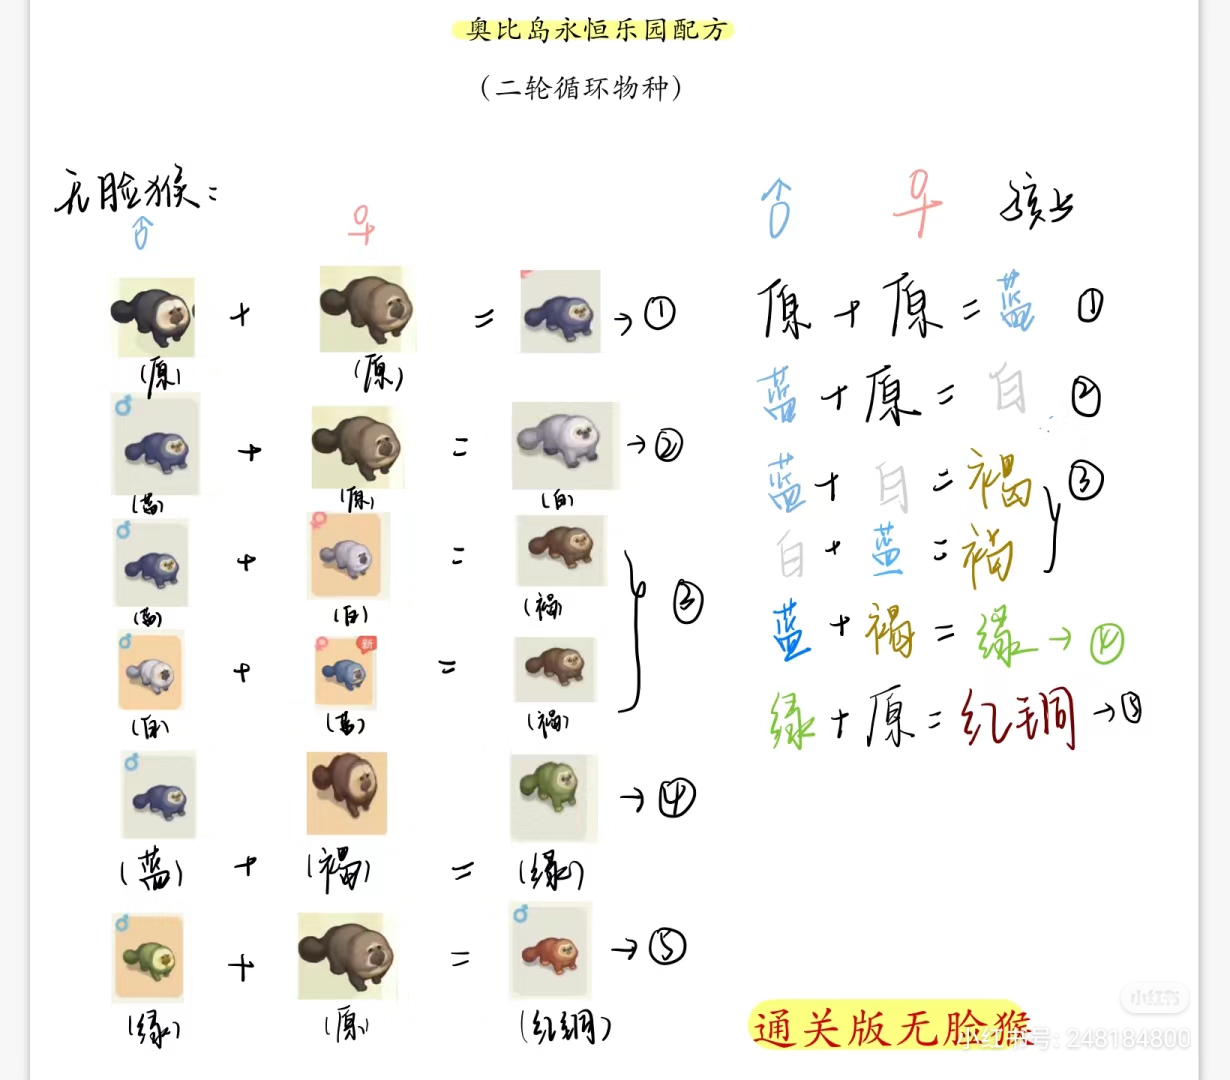 奥比岛永恒乐园配方
（二轮循环物种）
无脸猴：
♂ ♀
+ = → ①
(原) (原)
+ = → ②
(蓝) (原) (白)
+ =
(蓝) (白) (褐)
③
新
+ =
(白) (蓝) (褐)
→ ④
(蓝) + (褐) = (绿)
+ = → ⑤
(绿) (原) (红铜)
♂ ♀ 孩子
原 + 原 = 蓝 ①
蓝 + 原 = 白 ②
蓝 + 白 = 褐 ③
白 + 蓝 = 褐
蓝 + 褐 = 绿 → ④
绿 + 原 = 红铜 → ⑤
通关版无脸猴
小红书
小红书号: 248184800